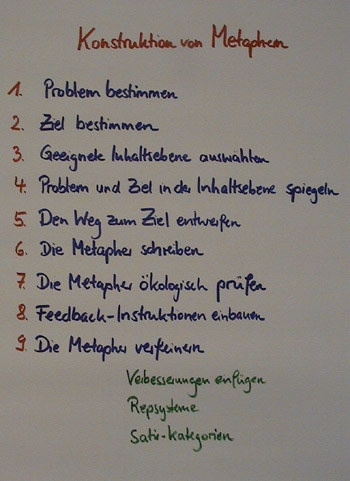 Konstruktion von Metaphern
1. Problem bestimmen
2. Ziel bestimmen
3. Geeignete Inhaltsebene auswählen
4. Problem und Ziel in der Inhaltsebene spiegeln
5. Den Weg zum Ziel entwerfen
6. Die Metapher schreiben
7. Die Metapher ökologisch prüfen
8. Feedback-Instruktionen einbauen
9. Die Metapher verfeinern
Verbesserungen einfügen
Repsysteme
Satir-Kategorien